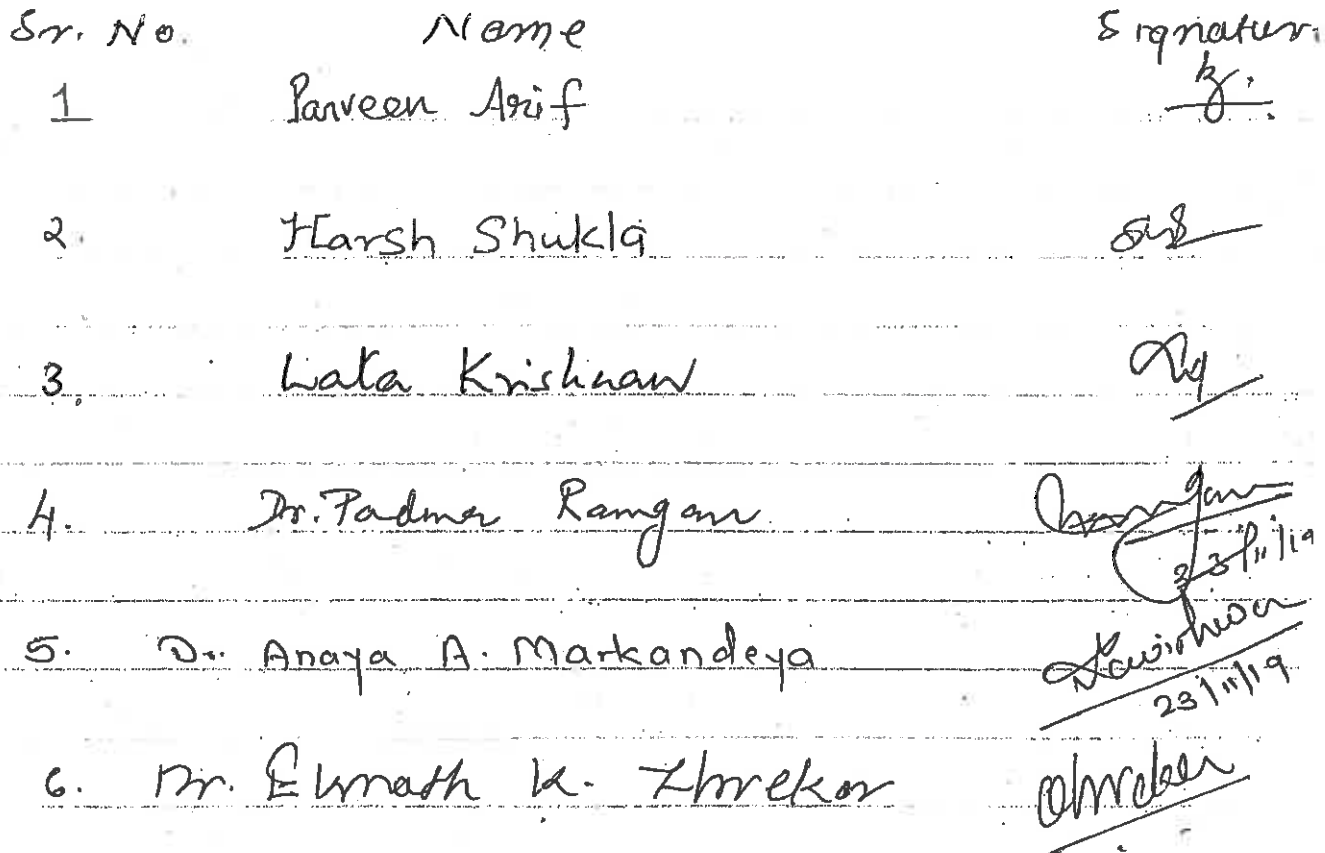 Sr. No. Name Signatur
1 Parveen Arif
2. Harsh Shukla
3. Lata Krishnan
4. Dr. Padma Rangan
23/11/19
5. Dr. Anaya A. Markandeya
23/11/19
6. Dr. Eknath K.